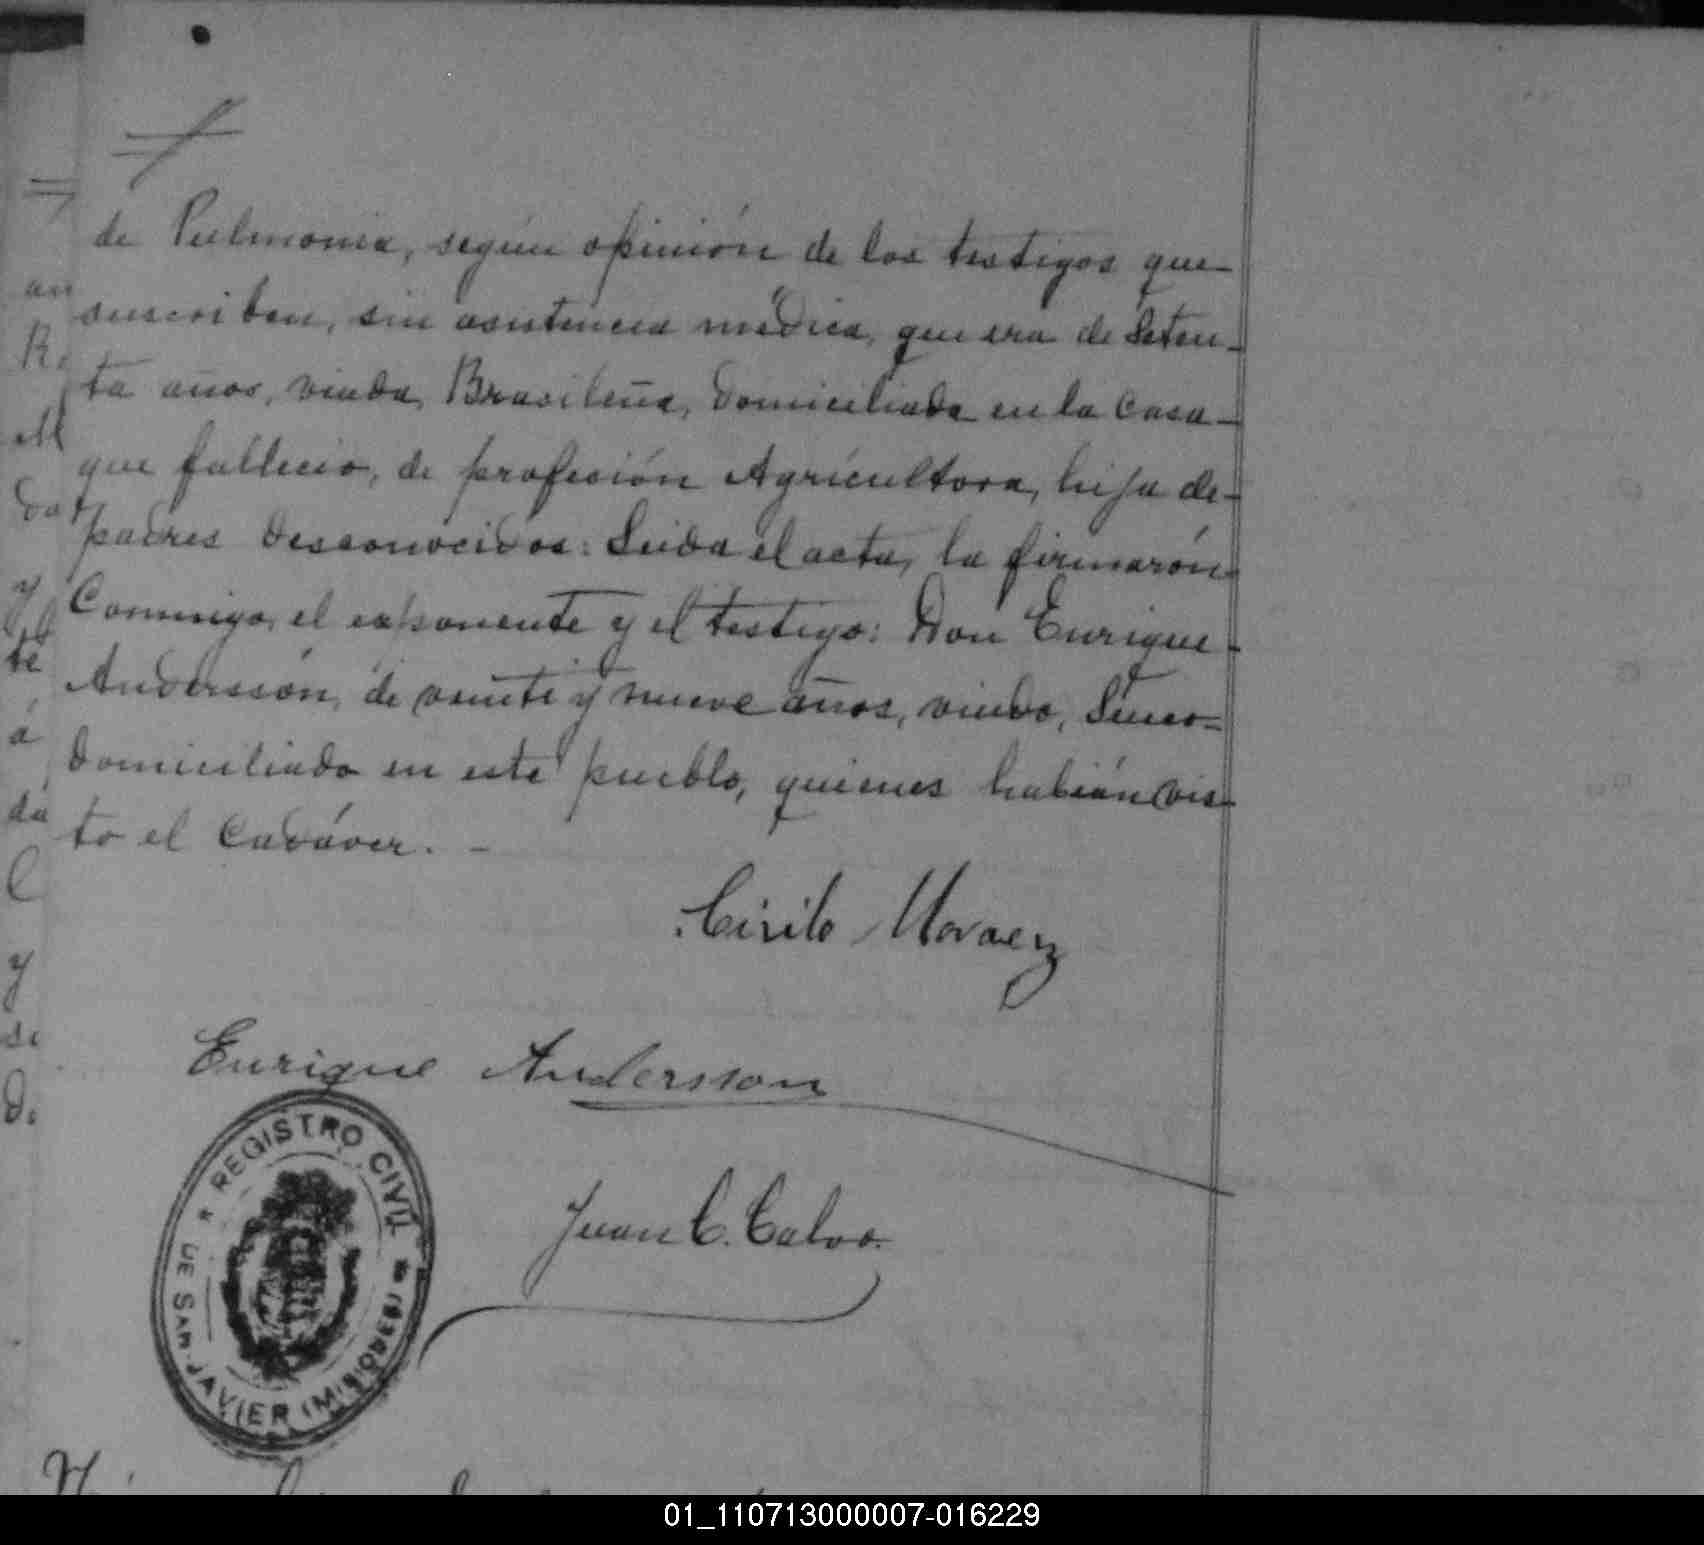 de Pulmonia, según opinión de los testigos que
suscriben, sin asistencia médica, que era de Seten-
ta años, viuda, Brasileña, domiciliada en la Casa
que fallecio, de profesión Agricultora, hija de
padres desconocidos: Leida el acta, la firmarón
Conmigo, el exponente y el testigo: Don Enrique
Andersson, de veinte y nueve años, viudo, Sueco
domiciliado en este pueblo, quienes habián vis
to el Cadáver. -
Cirilo Moraez
Enrique Andersson
REGISTRO CIVIL
DE SAN JAVIER (MISIONES)
Juan C. Calvo.
an
R.
M
y
te
á
da
y
se
01_110713000007-016229